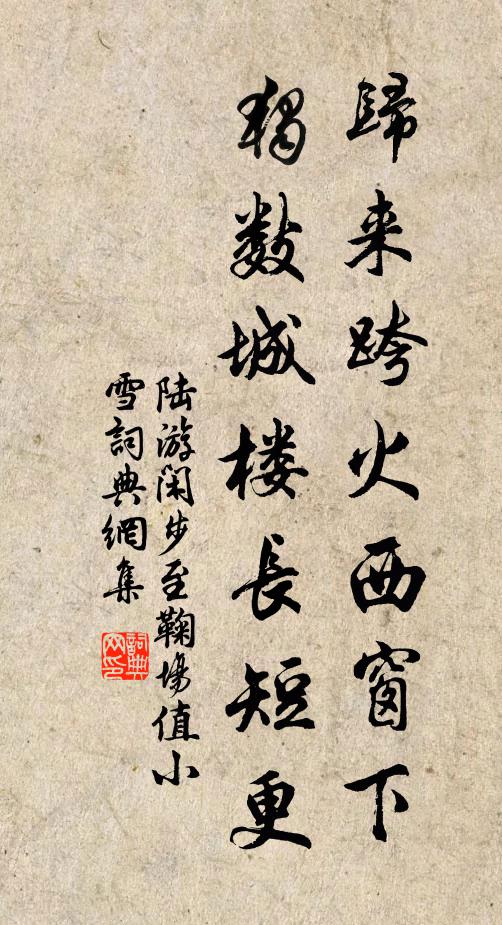 歸来跨火西窗下
独数城楼長短更
陆游闲步至鞠場值小
雪詞典網集
詞典
网印